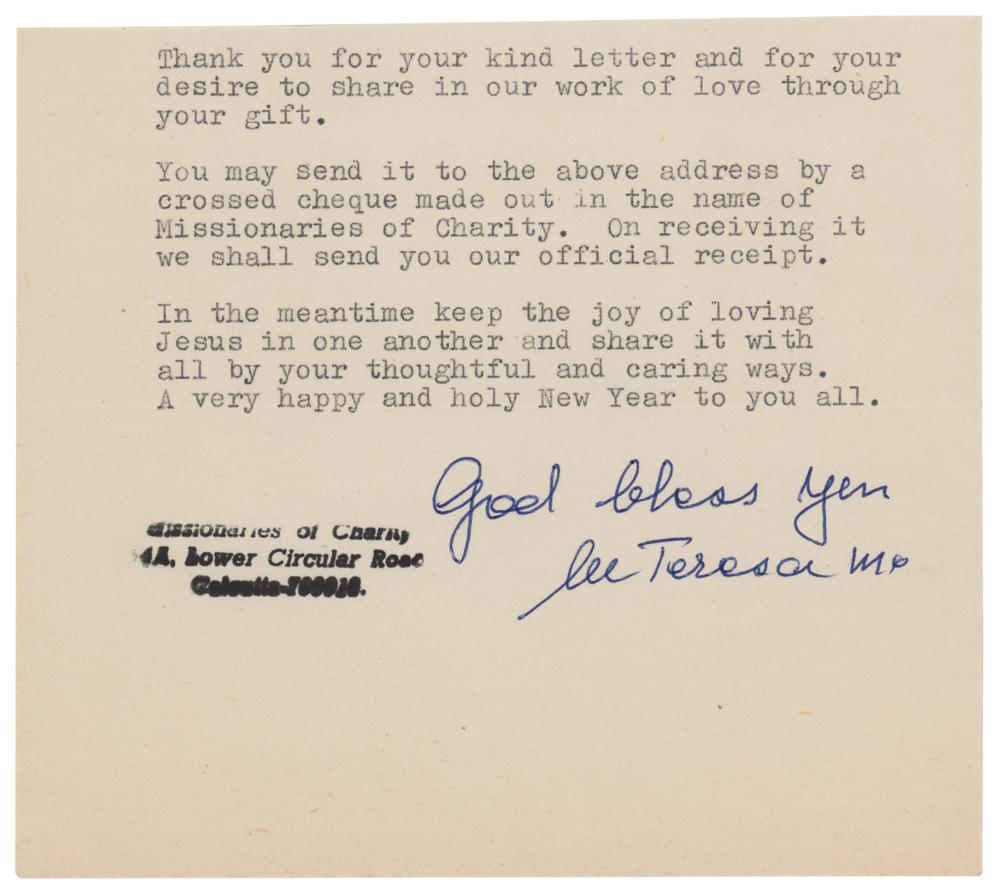 Thank you for your kind letter and for your
desire to share in our work of love through
your gift.
You may send it to the above address by a
crossed cheque made out in the name of
Missionaries of Charity. On receiving it
we shall send you our official receipt.
In the meantime keep the joy of loving
Jesus in one another and share it with
all by your thoughtful and caring ways.
A very happy and holy New Year to you all.
God bless you
Teresa mc
Missionaries of Charity
54A, Lower Circular Road
Calcutta-700016.